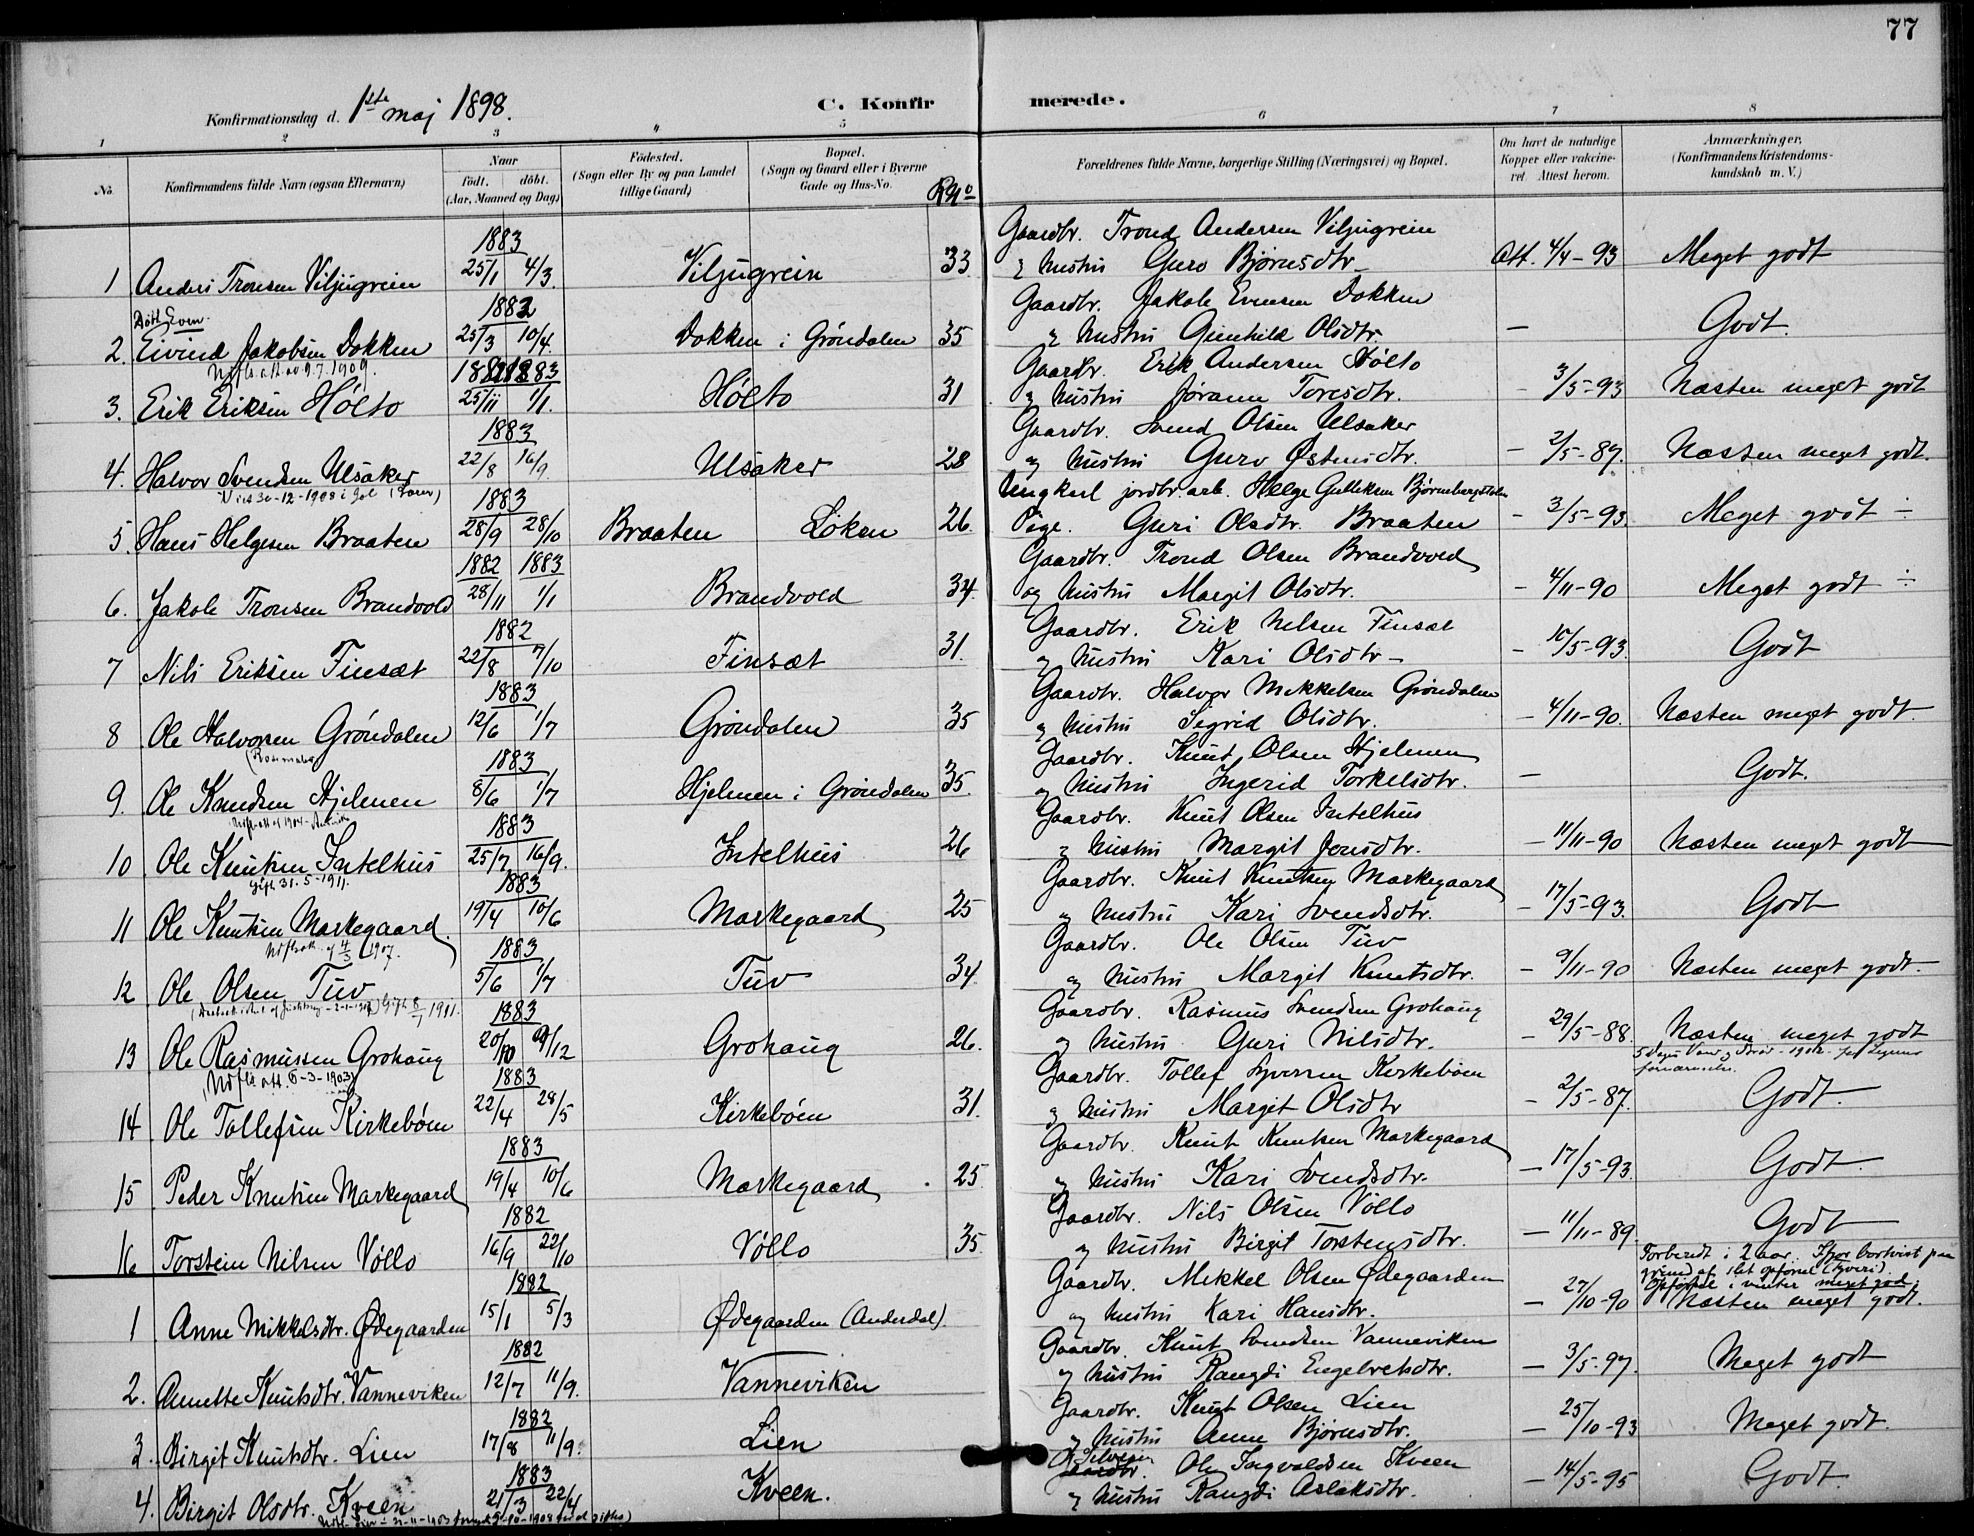 77
Konfirmationsdag d. 1ste maj 1898.
C. Konfirmerede.
1 2 3 4 5 6 7 8
No.
Konfirmandens fulde Navn (ogsaa Efternavn)
Naar
født. døbt.
(Aar, Maaned og Dag)
Fødested.
(Sogn eller By og paa Landet
tillige Gaard)
Bopæl.
(Sogn og Gaard eller i Byerne
Gade og Hus-No.
Forældrenes fulde Navne, borgerlige Stilling (Næringsvei) og Bopæl.
Om havt de naturlige
Kopper eller vakcine-
ret. Attest herom.
Anmærkninger.
(Konfirmandens Kristendoms-
kundskab m. V.)
1883 Gaardbr. Trond Andersen Viljugrein
1 Anders Tronsen Viljugrein 25/1 4/3. Viljugrein 33 & hustru Guro Bjørnsdtr. Att. 4/4-93 Meget godt
Døbt Even 1882 Gaardbr. Jakob Evensen Dokken
2. Eivind Jakobsen Dokken 25/3 10/4. Dokken i Grøndalen 35 & hustru Gunhild Olsdtr. — Godt.
1882 1883 Gaardbr. Erik Andersen Hølto
3. Erik Eriksen Hølto 25/11 1/1. Hølto 31 og hustru Jørann Toresdtr. - 3/5-93 Næsten meget godt
1883 Gaardbr. Svend Olsen Ulsaker
4. Halvor Svendsen Ulsaker 22/8 16/9. Ulsaker 28 og hustru Guro Østensdtr. - 2/5-87. Næsten meget godt.
1883 Ungkarl jordbr. arb. Helge Gulleksen
5. Hans Helgesen Braaten 28/9 28/10 Braaten Løken 26. Pige. Guri Olsdtr. Braaten - 3/5-93. Meget godt ÷
1882 1883 Gaardbr. Trond Olsen Brandvold
6. Jakob Tronsen Brandvold 28/11 1/1 Brandvold 34. og hustru Margit Olsdtr. - 4/11-90 Meget godt ÷
1882 Gaardbr. Erik Nilsen Finsæt
7 Nils Eriksen Finsæt 22/8 7/10 Finsæt 31. og hustru Kari Olsdtr. - 10/5-93. Godt
1883 Gaardbr. Halvor Mekkelsen Grøndalen
8 Ole Halvorsen Grøndalen 12/6 1/7 Grøndalen 35 og hustru Segrid Olsdtr. - 4/11-90. Næsten meget godt.
1883 Gaardbr. Knut Olsen Hjelmen
9. Ole Knudsen Hjelmen 8/6 1/7 Hjelmen i Grøndalen 35. og hustru Ingerid Torkelsdtr. — Godt.
1883 Gaardbr. Knut Olsen Intelhus
10 Ole Knutsen Intelhus 25/7 16/9. Intelhus 26 & hustru Margit Jensdtr. - 11/11-90 Næsten meget godt
Gift 31.5-1911.
1883 Gaardbr. Knut Knutsen Markegaard
11 Ole Knutsen Markegaard. 19/4 10/6 Markegaard 25 og hustru Kari Svendsdtr. - 17/5-93. Godt
1883 Gaardbr. Ole Olsen Tuv
12 Ole Olsen Tuv 5/6 1/7 Tuv 34. og hustru Margit Knutsdtr. - 9/11-90 Næsten meget godt.
1883 Gaardbr. Rasmus Svendsen Grohaug
13 Ole Rasmussen Grohaug 20/10 9/12 Grohaug 26. og hustru Guri Nilsdtr. - 29/5-88. Næsten meget godt
1883 Gaardbr. Tollef Syversen Kirkebøen
14 Ole Tollefsen Kirkebøen 22/4 28/5 Kirkebøen 31. og hustru Margit Olsdtr - 2/5-87. Godt.
1883 Gaardbr. Knut Knutsen Markegaard
15 Peder Knutsen Markegaard 19/4 10/6 Markegaard 25. og hustru Kari Svendsdtr. - 17/5-93. Godt.
1882 Gaardbr. Nils Olsen Vøllo
16 Torstein Nilsen Vøllo 16/9 22/10 Vøllo 35. og hustru Birgit Torstensdtr. - 11/11-89 Godt
Forberedt i 2 aar. Ifjor bortvist paa
grund af slet opførsel (Tyveri).
Opførsel i vinter meget god.
1882 Gaardbr. Mekkel Olsen Ødegaarden
1 Anne Mikkelsdtr. Ødegaarden 15/1 5/3 Ødegaarden (Anderdal). og hustru Kari Hansdtr. - 27/10-90 Næsten meget godt.
1882 Gaardbr. Knut Svendsen Vanneviken
2. Annette Knutsdtr. Vanneviken 12/7 11/9. Vanneviken og hustru Rangdi Engebretsdtr. - 3/5-97. Meget godt
1882 Gaardbr. Knut Olsen Lien
3. Birgit Knutsdtr. Lien 17/8 11/9. Lien og hustru Anne Bjørnsdtr. - 25/10-93 Meget godt.
1883 Gaardbr. Ole Ingvaldsen Kveen
4. Birgit Olsdtr. Kveen 21/3 22/4 Kveen. og hustru Rangdi Aslaksdtr. - 14/5-95 Godt.